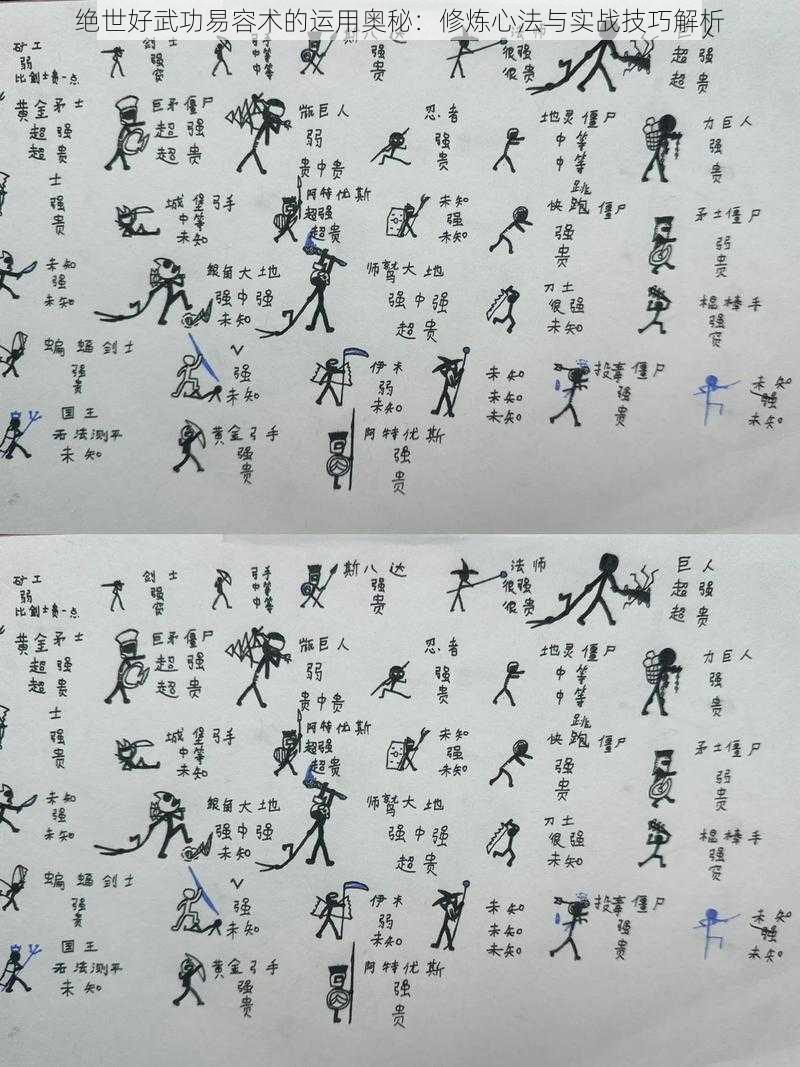 绝世好武功易容术的运用奥秘：修炼心法与实战技巧解析
矿工
弱
比剑士贵一点
剑士
强
弓手
中等
中等
斯八达
强
贵
法师
很强
很贵
巨人
超强
超贵
黄金矛士
超强
超贵
巨矛僵尸
超强
超贵
巨人
弱
贵中贵
忍者
强
贵
地灵僵尸
中等
中等
力巨人
强
贵
士
强
贵
城堡弓手
中等
未知
阿特优斯
超强
超贵
未知
强
未知
跳
快跑僵尸
强
贵
矛士僵尸
弱
贵
未知
强
未知
银角大地
强中强
未知
师鹫大地
强中强
超贵
刀士
很强
未知
棍棒手
强
蝙蝠剑士
强
贵
V
强
未知
伊木
弱
未知
未知
未知
未知
投毒僵尸
强
贵
未知
强
未知
国王
无法测平
未知
黄金弓手
强
贵
阿特优斯
强
贵
矿工
弱
比剑士贵一点
剑士
强
弓手
中等
中等
斯八达
强
贵
法师
很强
很贵
巨人
超强
超贵
黄金矛士
超强
超贵
巨矛僵尸
超强
超贵
巨人
弱
贵中贵
忍者
强
贵
地灵僵尸
中等
中等
力巨人
强
贵
士
强
贵
城堡弓手
中等
未知
阿特优斯
超强
超贵
未知
强
未知
跳
快跑僵尸
强
贵
矛士僵尸
弱
贵
未知
强
未知
银角大地
强中强
未知
师鹫大地
强中强
超贵
刀士
很强
未知
棍棒手
强
蝙蝠剑士
强
贵
V
强
未知
伊木
弱
未知
未知
未知
未知
投毒僵尸
强
贵
未知
强
未知
国王
无法测平
未知
黄金弓手
强
贵
阿特优斯
强
贵